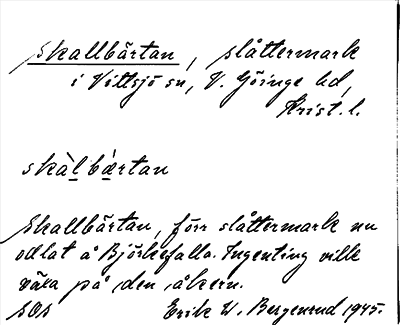 Skallbärtan, slåttermark
i Vittsjö sn, V. Göinge hd,
Krist. l.
skàl bæ̀rtan
Skallbärtan, förr slåttermark nu
odlat å Björkefalla. Ingenting ville
växa på den åkern.
SOS Erik W. Bergenrud 1945.